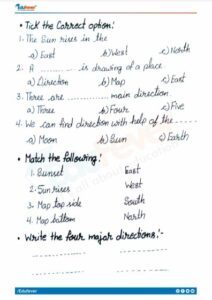 Edufever
• Tick the Correct option:
1. The Sun rises in the
a) East b) West c) North
2. A ........... is drawing of a place
a) Direction b) Map c) East
3. There are .......... main direction.
a) Three b) Four c) Five
4. We can find direction with help of the ......
a) Moon b) Sun c) Earth
• Match the following:
1. Sunset East
2. Sun rises West
3. Map top side South
4. Map bottom North
• Write the four major directions:-
/Edufever